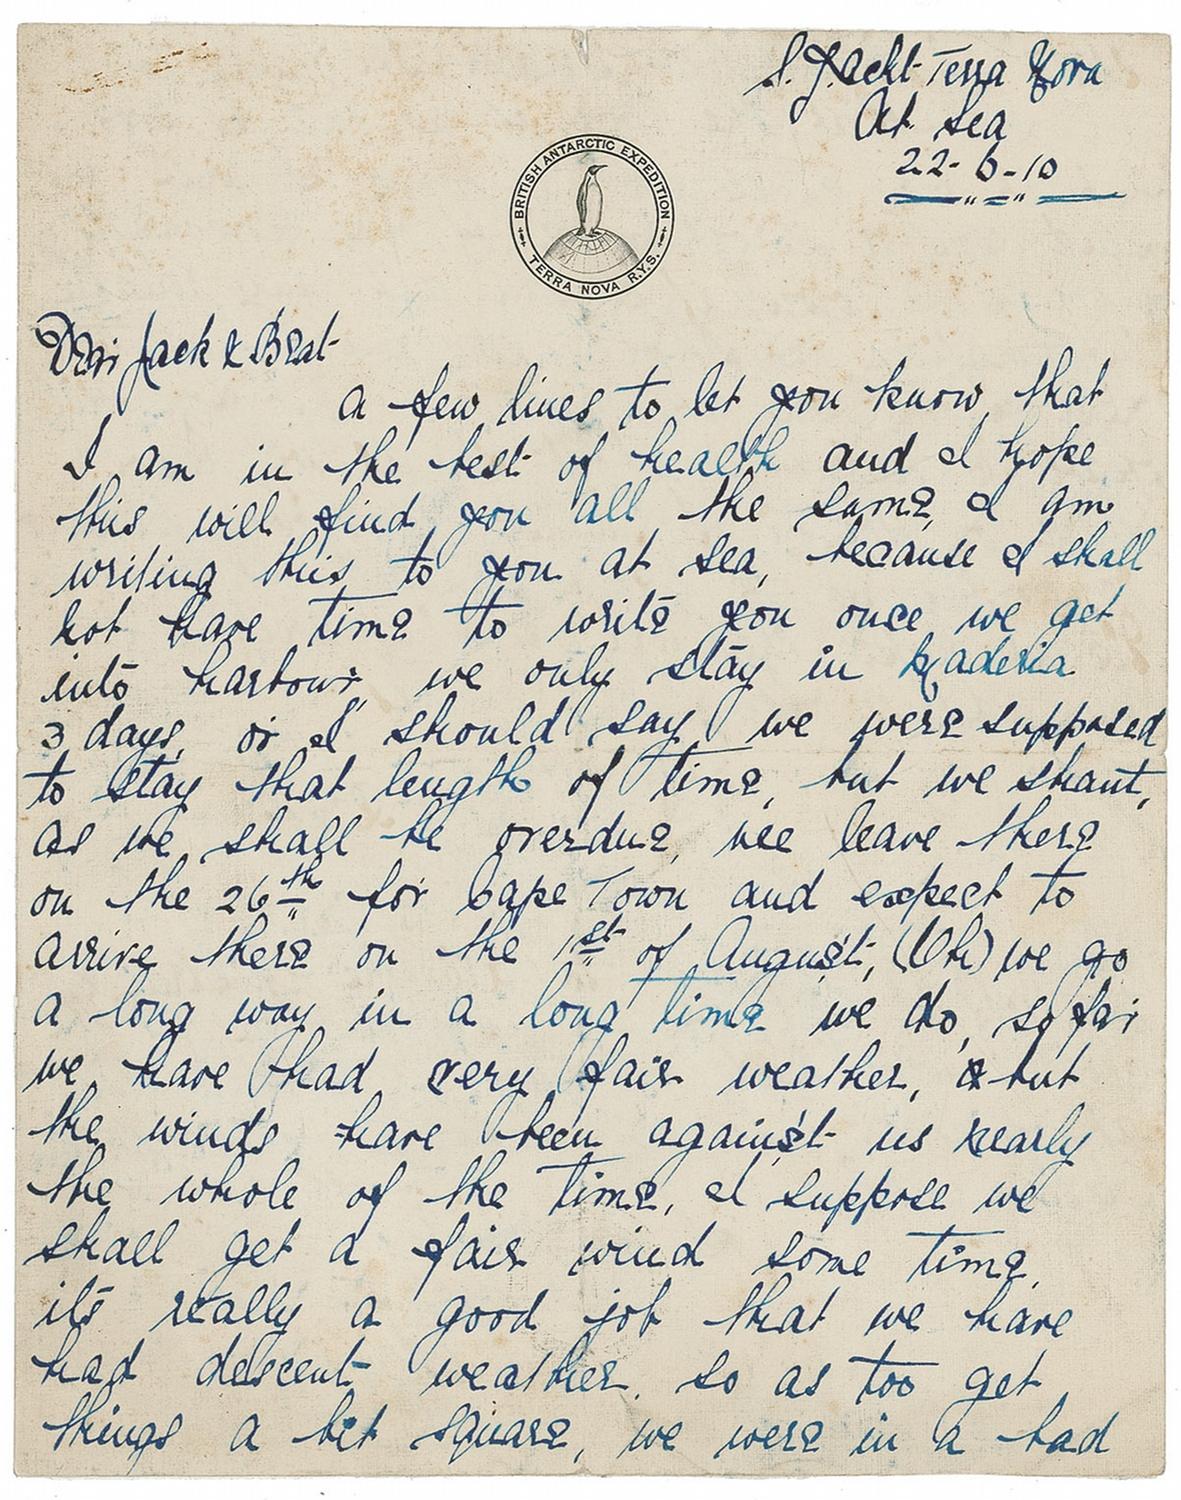 S. Yacht Terra Nova
At Sea
22-6-10
BRITISH ANTARCTIC EXPEDITION
TERRA NOVA R.Y.S.
Dear Jack & Beat
a few lines to let you know, that
I am in the best of health and I hope
this will find you all the same, I am
writing this to you at sea, because I shall
not have time to write you once we get
into harbour, we only stay in Maderia
3 days, or I should say we were supposed
to stay that length of time, but we shant,
as we shall be overdue, wee leave there
on the 26th for Cape Town and expect to
arrive there on the 1st of August, (Oh) we go
a long way in a long time we do, so far
we have had very fair weather, & but
the winds have been against us nearly
the whole of the time, I suppose we
shall get a fair wind some time,
its really a good job that we have
had descent weather, so as too get
things a bit square, we were in a bad